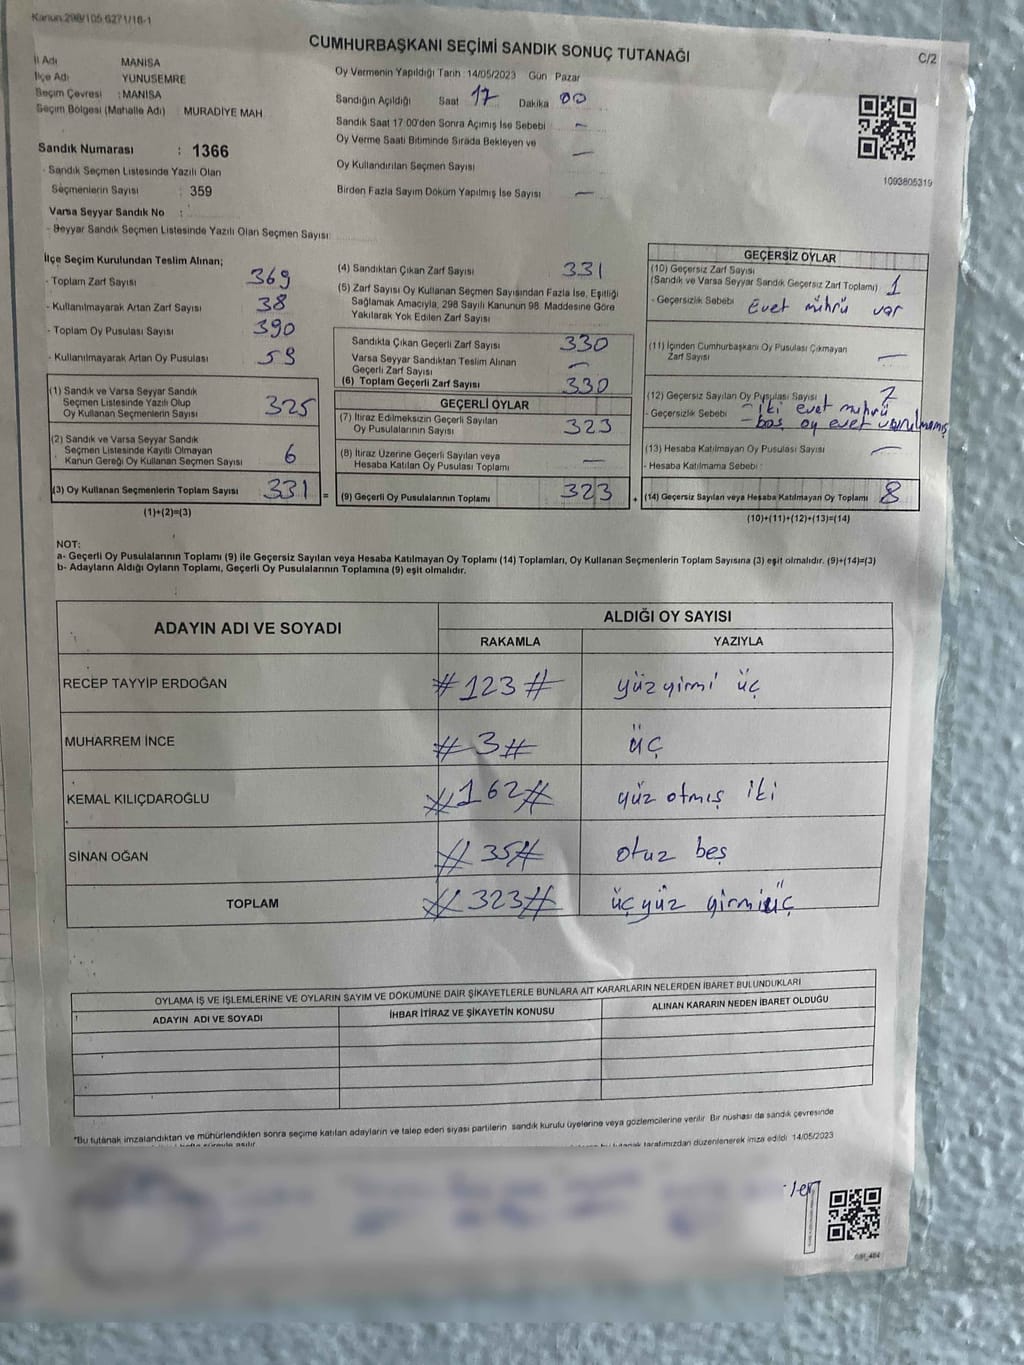 Kanun:298/105 6271/18-1
CUMHURBAŞKANI SEÇİMİ SANDIK SONUÇ TUTANAĞI
C/2
İl Adı MANİSA
İlçe Adı YUNUSEMRE
Seçim Çevresi : MANİSA
Seçim Bölgesi (Mahalle Adı) : MURADİYE MAH
Sandık Numarası : 1366
- Sandık Seçmen Listesinde Yazılı Olan
Seçmenlerin Sayısı : 359
Varsa Seyyar Sandık No :
- Seyyar Sandık Seçmen Listesinde Yazılı Olan Seçmen Sayısı:
Oy Vermenin Yapıldığı Tarih :14/05/2023 Gün Pazar
Sandığın Açıldığı Saat 17 Dakika 00
Sandık Saat 17:00'den Sonra Açımış İse Sebebi –
Oy Verme Saati Bitiminde Sırada Bekleyen ve
Oy Kullandırılan Seçmen Sayısı —
Birden Fazla Sayım Döküm Yapılmış İse Sayısı —
1093805319
İlçe Seçim Kurulundan Teslim Alınan;
- Toplam Zarf Sayısı 369
- Kullanılmayarak Artan Zarf Sayısı 38
- Toplam Oy Pusulası Sayısı 390
- Kullanılmayarak Artan Oy Pusulası 59
(1) Sandık ve Varsa Seyyar Sandık
Seçmen Listesinde Yazılı Olup
Oy Kullanan Seçmenlerin Sayısı 325
(2) Sandık ve Varsa Seyyar Sandık
Seçmen Listesinde Kayıtlı Olmayan
Kanun Gereği Oy Kullanan Seçmen Sayısı 6
(3) Oy Kullanan Seçmenlerin Toplam Sayısı 331 =
(1)+(2)=(3)
(4) Sandıktan Çıkan Zarf Sayısı 331
(5) Zarf Sayısı Oy Kullanan Seçmen Sayısından Fazla İse, Eşitliği
Sağlamak Amacıyla, 298 Sayılı Kanunun 98. Maddesine Göre
Yakılarak Yok Edilen Zarf Sayısı
Sandıkta Çıkan Geçerli Zarf Sayısı 330
Varsa Seyyar Sandıktan Teslim Alınan
Geçerli Zarf Sayısı –
(6) Toplam Geçerli Zarf Sayısı 330
GEÇERLİ OYLAR
(7) İtiraz Edilmeksizin Geçerli Sayılan
Oy Pusulalarının Sayısı 323
(8) İtiraz Üzerine Geçerli Sayılan veya
Hesaba Katılan Oy Pusulası Toplamı —
(9) Geçerli Oy Pusulalarının Toplamı 323 +
GEÇERSİZ OYLAR
(10) Geçersiz Zarf Sayısı
(Sandık ve Varsa Seyyar Sandık Geçersiz Zarf Toplamı) 1
- Geçersizlik Sebebi Evet mührü var
(11) İçinden Cumhurbaşkanı Oy Pusulası Çıkmayan
Zarf Sayısı —
(12) Geçersiz Sayılan Oy Pusulası Sayısı 7
- Geçersizlik Sebebi – iki evet mührü
– boş oy evet vurulmamış
(13) Hesaba Katılmayan Oy Pusulası Sayısı —
- Hesaba Katılmama Sebebi :
(14) Geçersiz Sayılan veya Hesaba Katılmayan Oy Toplamı 8
(10)+(11)+(12)+(13)=(14)
NOT:
a- Geçerli Oy Pusulalarının Toplamı (9) ile Geçersiz Sayılan veya Hesaba Katılmayan Oy Toplamı (14) Toplamları, Oy Kullanan Seçmenlerin Toplam Sayısına (3) eşit olmalıdır. (9)+(14)=(3)
b- Adayların Aldığı Oyların Toplamı, Geçerli Oy Pusulalarının Toplamına (9) eşit olmalıdır.
ADAYIN ADI VE SOYADI ALDIĞI OY SAYISI
RAKAMLA YAZIYLA
RECEP TAYYİP ERDOĞAN #123# yüz yirmi üç
MUHARREM İNCE #3# üç
KEMAL KILIÇDAROĞLU #162# yüz otmış iki
SİNAN OĞAN #35# otuz beş
TOPLAM #323# üç yüz yirmi üç
OYLAMA İŞ VE İŞLEMLERİNE VE OYLARIN SAYIM VE DÖKÜMÜNE DAİR ŞİKAYETLERLE BUNLARA AİT KARARLARIN NELERDEN İBARET BULUNDUKLARI
ADAYIN ADI VE SOYADI İHBAR İTİRAZ VE ŞİKAYETİN KONUSU ALINAN KARARIN NEDEN İBARET OLDUĞU
*Bu tutanak imzalandıktan ve mühürlendikten sonra seçime katılan adayların ve talep eden siyasi partilerin sandık kurulu üyelerine veya gözlemcilerine verilir. Bir nüshası da sandık çevresinde
bu tutanak tarafımızdan düzenlenerek imza edildi 14/05/2023